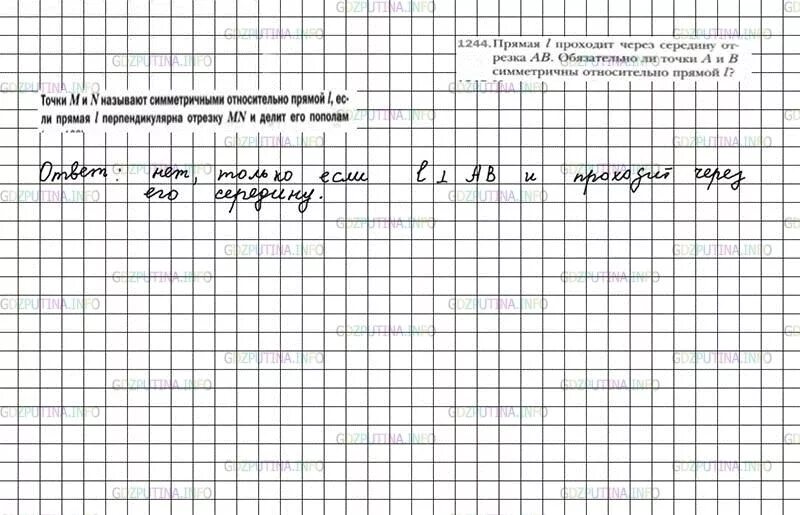 1244. Прямая l проходит через середину от-
резка AB. Обязательно ли точки A и B
симметричны относительно прямой l?
Точки M и N называют симметричными относительно прямой l, ес-
ли прямая l перпендикулярна отрезку MN и делит его пополам
Ответ: нет, только если l ⊥ AB и проходит через
его середину.
GDZPUTINA.INFO